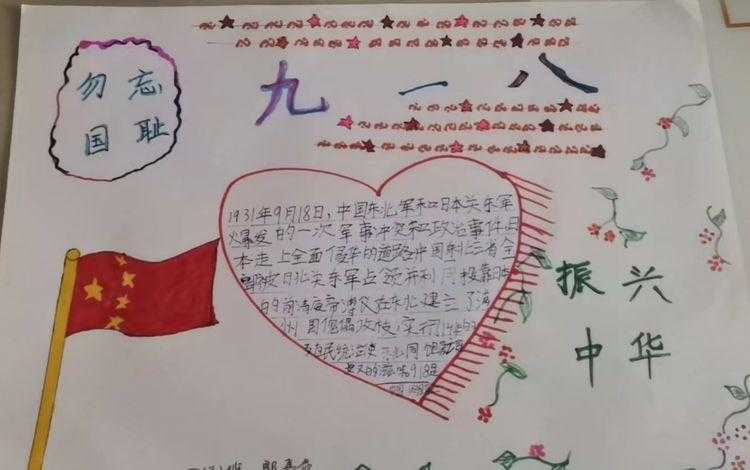 勿忘
国耻
九一八
1931年9月18日，中国东北军和日本关东军
爆发的一次军事冲突和政治事件日
本走上全面侵华的道路中国东北三省全
部被日北关东军占领并利用投靠日本
的前清废帝溥仪在东北建立了满
州国傀儡政权，实行14年的
殖民统治使东北同胞
的滋味918
振兴
中华